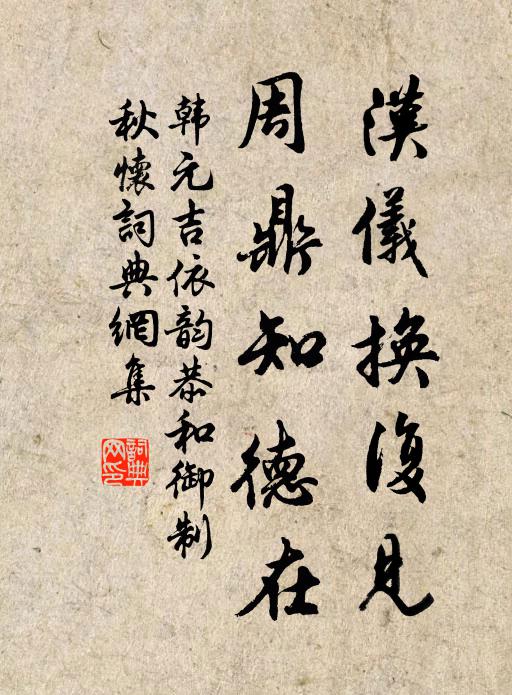 漢儀換復見
周鼎知德在
韩元吉依韵恭和御制
秋懷詞典網集
詞典网印